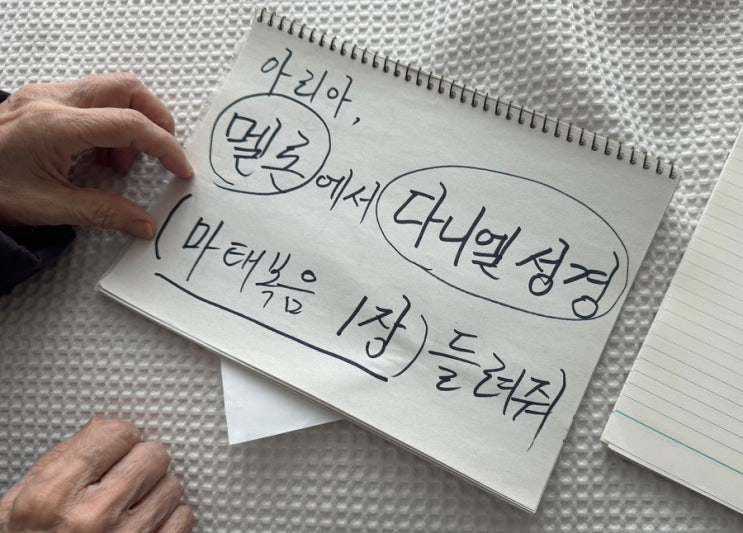 아리아,
멜론에서 다니엘 성경
(마태복음 1장) 들려줘